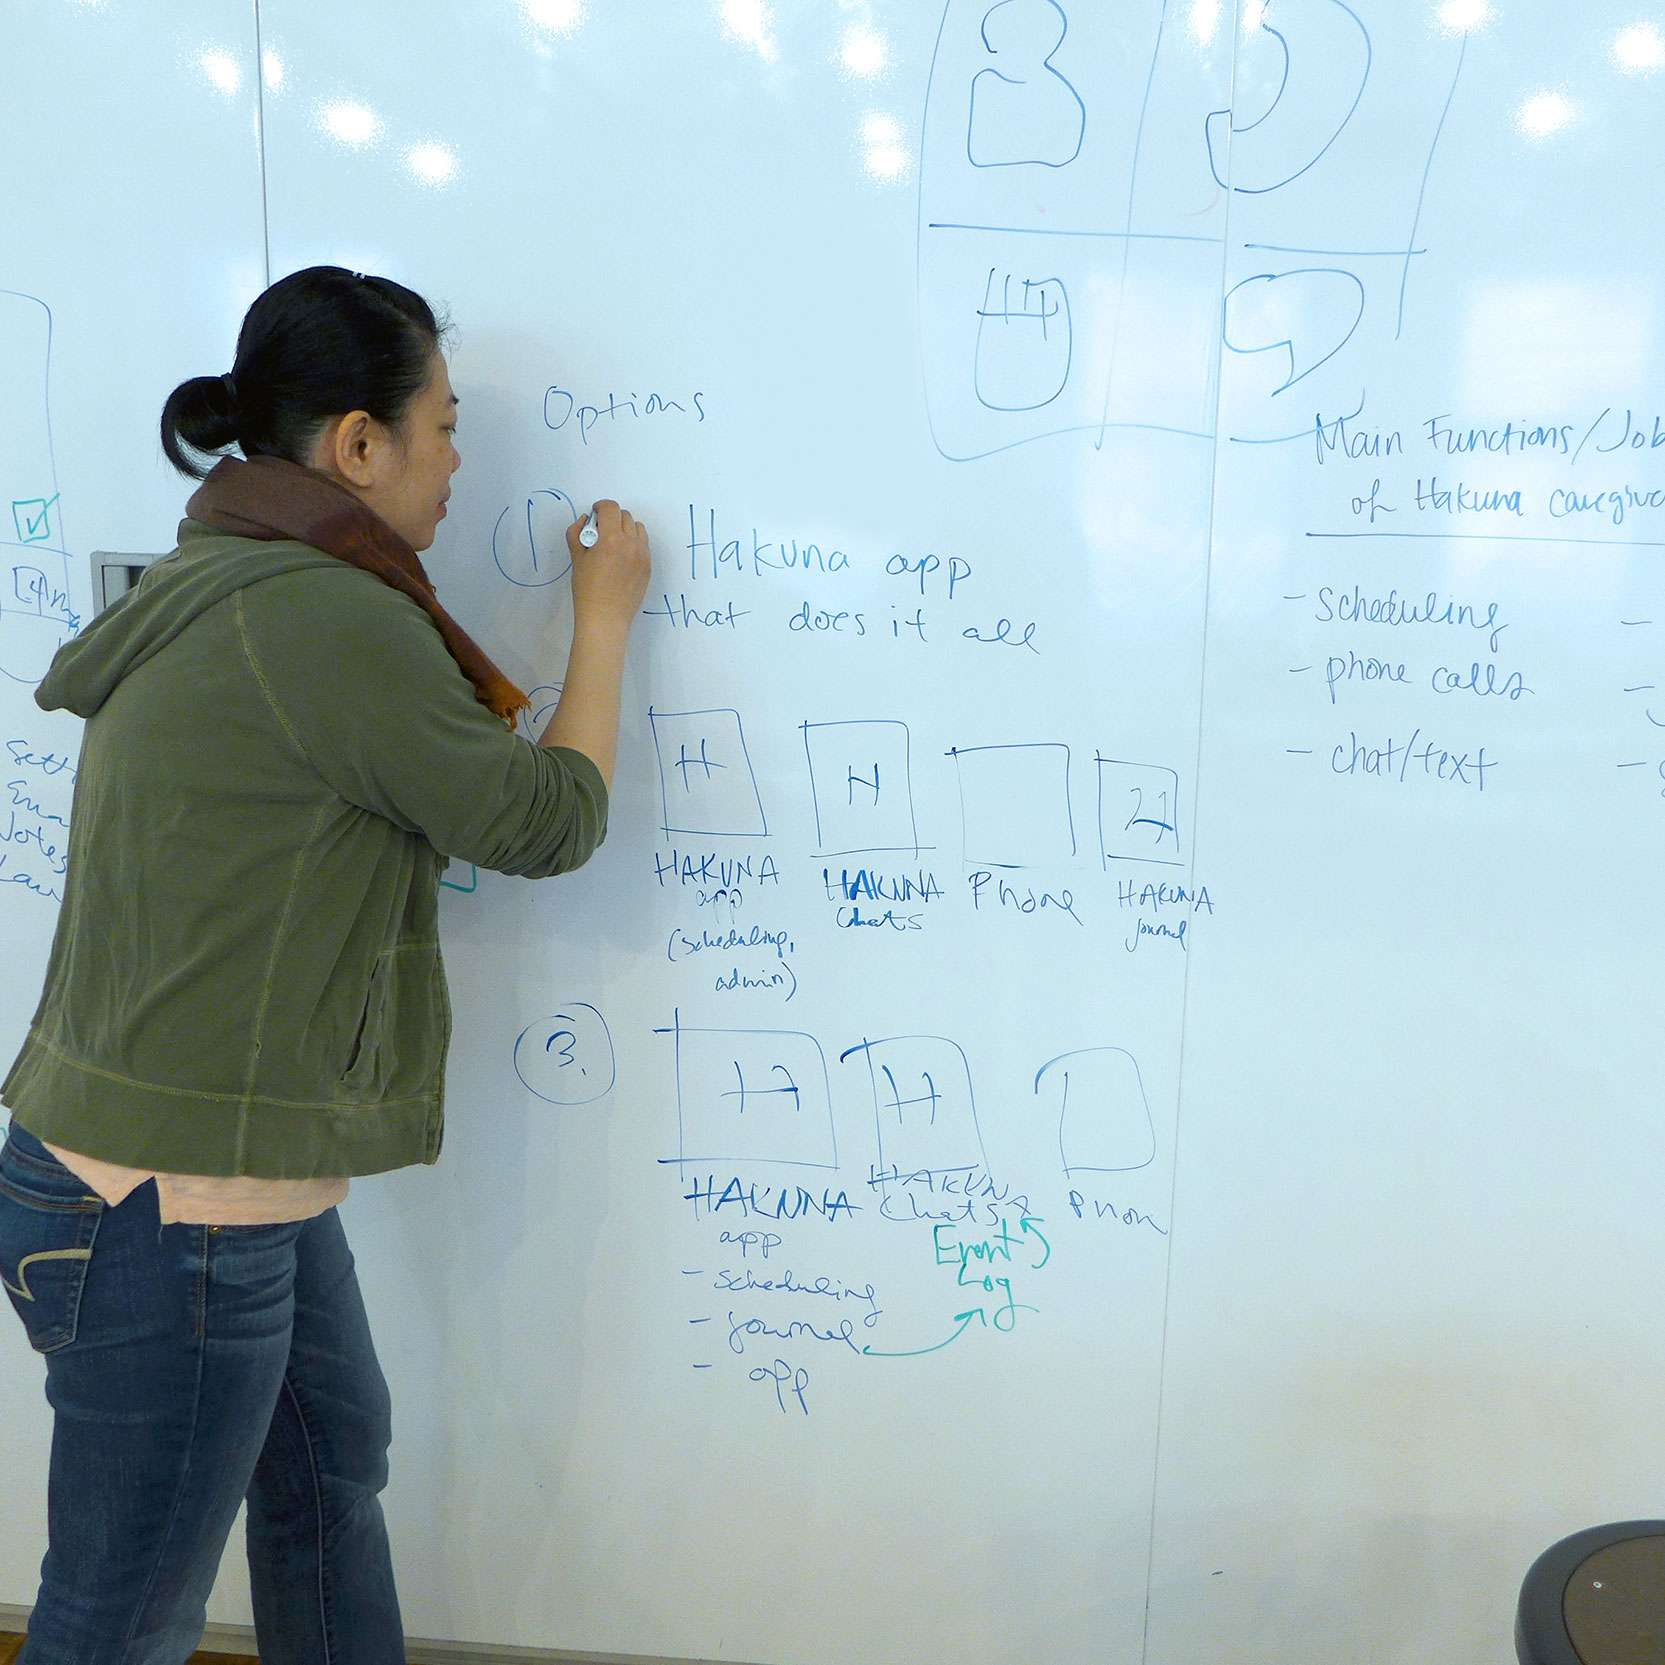 Options
1.
Hakuna app
that does it all
H
H
21
HAKUNA
app
(scheduling,
admin)
HAKUNA
Chats
Phone
HAKUNA
journal
3.
H
H
HAKUNA
app
- scheduling
- journal
- app
HAKUNA
Chats
Event
Log
Phon
Main Functions/Job
of Hakuna caregive
- scheduling
- phone calls
- chat/text
Notes